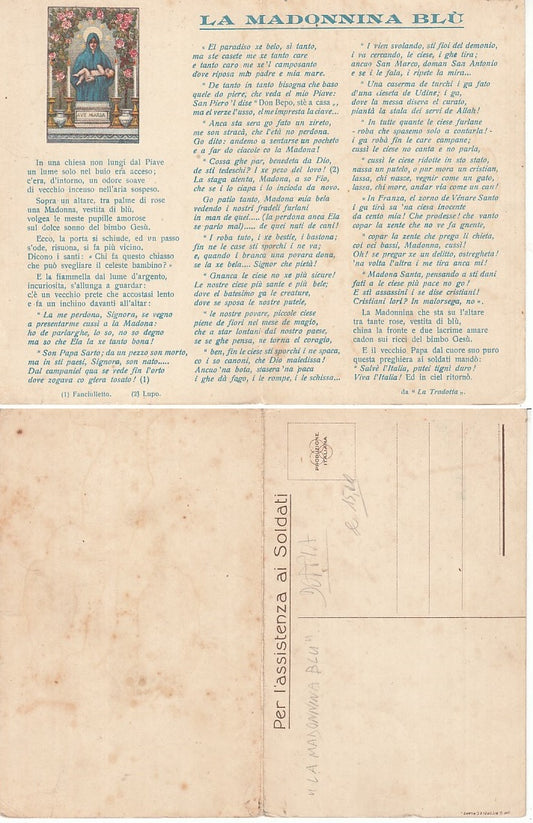 LA MADONNINA BLÙ
AVE MARIA
In una chiesa non lungi dal Piave
un lume solo nel buio era acceso;
c'era, d'intorno, un odore soave
di vecchio incenso nell'aria sospeso.
Sopra un altare, tra palme di rose
una Madonna, vestita di blù,
volgea le meste pupille amorose
sul dolce sonno del bimbo Gesù.
Ecco, la porta si schiude, ed un passo
s'ode, risuona, si fa più vicino,
Dicono i santi: « Chi fa questo chiasso
che può svegliare il celeste bambino? »
E la fiammella dal lume d'argento,
incuriosita, s'allunga a guardar:
c'è un vecchio prete che accostasi lento
e fa un inchino davanti all'altar:
" La me perdona, Signora, se vegno
a presentarme cussì a la Madona:
ho de parlarghe, lo so, no so degno
ma so che Ela la xe tanto bona!
" Son Papa Sarto; da un pezzo son morto,
ma in sti paesi, Signora, son nato.....
Dal campaniel qua se vede fin l'orto
dove zogava co giera tosato! (1)
« El paradiso xe belo, sì tanto,
ma ste casete me xe tanto care
e tanto caro me xe 'l camposanto
dove riposa mio padre e mia mare.
" De tanto in tanto bisogna che baso
quele do piere, che veda el mio Piave:
San Piero 'l dise " Don Bepo, stè a casa „,
ma el verze l'usso, el me impresta la ciave...
" Anca sta sera go fato un zireto,
me son stracà, che l'età no perdona.
Go dito: andemo a sentarse un pocheto
e a far do ciacole co la Madona!
" Cossa ghe par, benedeta da Dio,
de sti tedeschi? I xe pezo del lovo! (2)
La staga atenta, Madona, a so Fio,
che se i lo ciapa i lo incioda da novo.
Go patio tanto, Madona mia bela
vedendo i nostri fradeli furlani
in man de quei..... (la perdona anca Ela
se parlo mal)..... de quei nati de cani!
" I roba tuto, i xe bestie, i bastona;
fin ne le case sti sporchi i ne va;
e, quando i branca una povara dona,
se la xe bela.... Signor che pietà!
" Gnanca le ciese no xe più sicure!
Le nostre ciese più sante e più bele;
dove el batesimo ga le creature,
dove se sposa le nostre putele,
" le nostre povare, piccole ciese
piene de fiori nel mese de magio,
che a star lontani dal nostro paese,
se se ghe pensa, ne torna el coragio,
" ben, fin le ciese sti sporchi i ne spaca,
co i so canoni, che Dio maledissa!
Ancuo 'na bota, siasera 'na paca
i ghe dà fogo, i le rompe, i le schissa...
" I vien svolando, sti fioi del demonio,
i va cercando, le ciese, i ghe tira;
ancuo San Marco, doman San Antonio
e se i le fala, i ripete la mira...
" Una caserma de turchi i ga fato
d'una cieseta de Udine; i ga,
dove la messa diseva el curato,
piantà la stala dei servi de Allah!
" In tutte quante le ciese furlane
- roba che spasemo solo a contarla! -
i ga robà fin le care campane;
cussì le ciese no canta e no parla,
" cussì le ciese ridote in sto stato,
nassa un putelo, o pur mora un cristian,
lassa, chi nasce, vegnir come un gato,
lassa, chi more, andar via come un can!
" In Franza, el zorno de Vinare Santo
I ga tirà su 'na ciesa inocente
da cento mia! Che prodesse! che vanto
copar la zente che no ve fa gnente,
" copar la zente che prega lì chieta,
coi oci bassi, Madona, cussì!
Oh! se pregar xe un delitto, ostregheta!
'na volta l'altra i me tira anca mi!
" Madona Santa, pensando a sti dani
fati a le ciese più pace no go!
E sti assassini i se dise cristiani!
Cristiani lori? In malorsega, no ».
La Madonnina che sta su l'altare
tra tante rose, vestita di blù,
china la fronte e due lacrime amare
cadon sui ricci del bimbo Gesù.
E il vecchio Papa dal cuore suo puro
questa preghiera ai soldati mandò:
" Salvè l'Italia, putei tignì duro!
Viva l'Italia! Ed in ciel ritornò.
(1) Fanciulletto. (2) Lupo.
da " La Tradotta ".
PRODUZIONE
ITALIANA
Per l'assistenza ai Soldati
"LA MADONNINA BLU"